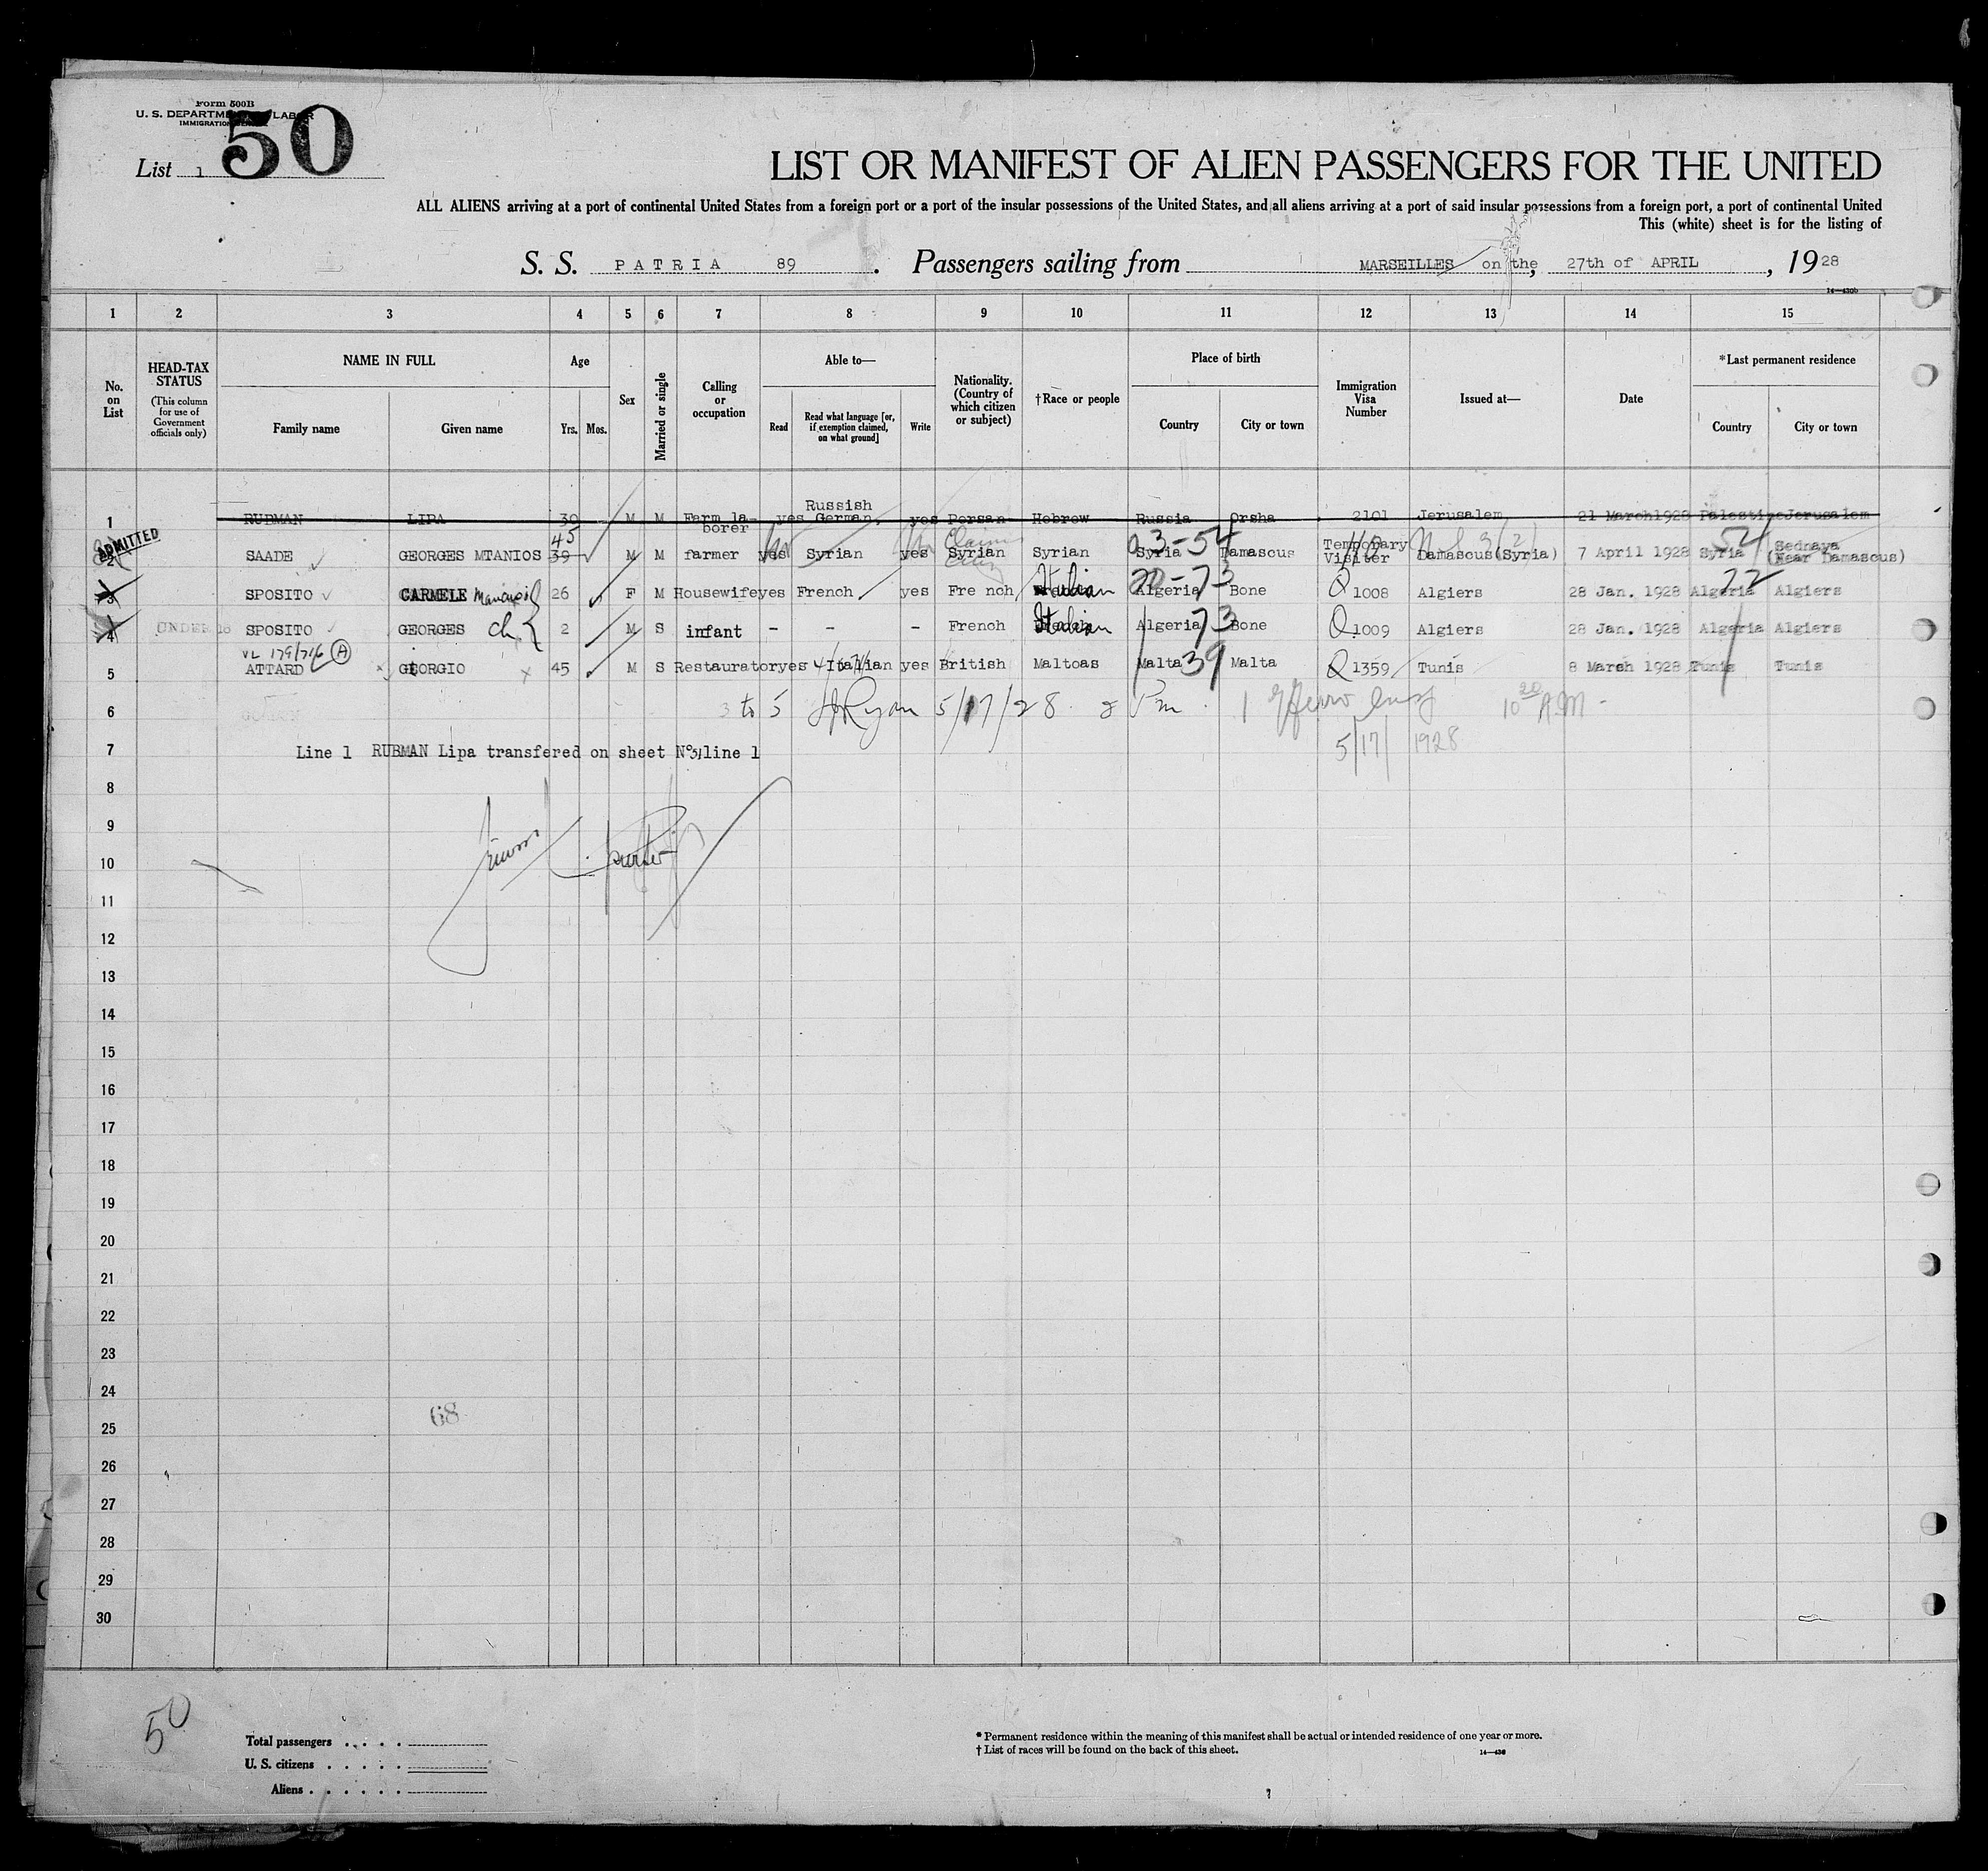 Form 500B
U. S. DEPARTMENT LABOR
IMMIGRATION
50
List 1
LIST OR MANIFEST OF ALIEN PASSENGERS FOR THE UNITED
ALL ALIENS arriving at a port of continental United States from a foreign port or a port of the insular possessions of the United States, and all aliens arriving at a port of said insular possessions from a foreign port, a port of continental United
This (white) sheet is for the listing of
S. S. PATRIA 89. Passengers sailing from MARSEILLES on the, 27th of APRIL, 1928
1 2 3 4 5 6 7 8 9 10 11 12 13 14 15
No. on List
HEAD-TAX STATUS
(This column for use of Government officials only)
NAME IN FULL
Family name Given name
Age
Yrs. Mos.
Sex
Married or single
Calling or occupation
Able to—
Read Read what language [or, if exemption claimed, on what ground] Write
Nationality. (Country of which citizen or subject)
†Race or people
Place of birth
Country City or town
Immigration Visa Number
Issued at—
Date
*Last permanent residence
Country City or town
1 RUBMAN LIPA 30 M M Farm la-borer yes Russish German, yes Persan Hebrew Russia Orsha 2101 Jerusalem 21 March 1928 Palestine Jerusalem
ADMITTED
2 SAADE GEORGES MTANIOS 39 45 M M farmer yes Syrian yes Syrian Syrian Syria 03-54 Damascus Temporary Visiter Damascus(Syria) 7 April 1928 Syria 54 Sednaya (Near Damascus)
3 SPOSITO CARMELE 26 F M Housewife yes French yes Fre nch Italian Algeria 20-73 Bone Q 1008 Algiers 28 Jan. 1928 Algeria 72 Algiers
4 UNDER 16 SPOSITO GEORGES Ch. 2 M S infant - - - French Italian Algeria 73 Bone Q 1009 Algiers 28 Jan. 1928 Algeria Algiers
VL 179/716 A
5 ATTARD GEORGIO 45 M S Restaurator yes Italian yes British Maltoas Malta 39 Malta Q 1359 Tunis 8 March 1928 Tunis Tunis
6 3 to 5 Ryan 5/17/28 8 Pm. 10 20 A.M.
5/17/1928
7 Line 1 RUBMAN Lipa transfered on sheet N°51 line 1
8
9
10
11
12
13
14
15
16
17
18
19
20
21
22
23
24
68
25
26
27
28
29
30
50
Total passengers
U. S. citizens
Aliens
* Permanent residence within the meaning of this manifest shall be actual or intended residence of one year or more.
† List of races will be found on the back of this sheet.